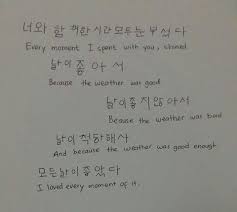 너와 함께한 시간 모두 눈 부셨다
Every moment I spent with you, shined
날이 좋아서
Because the weather was good
날이 좋지 않아서
Because the weather was bad
날이 적당해서
And because the weather was good enough
모든 날이 좋았다
I loved every moment of it.